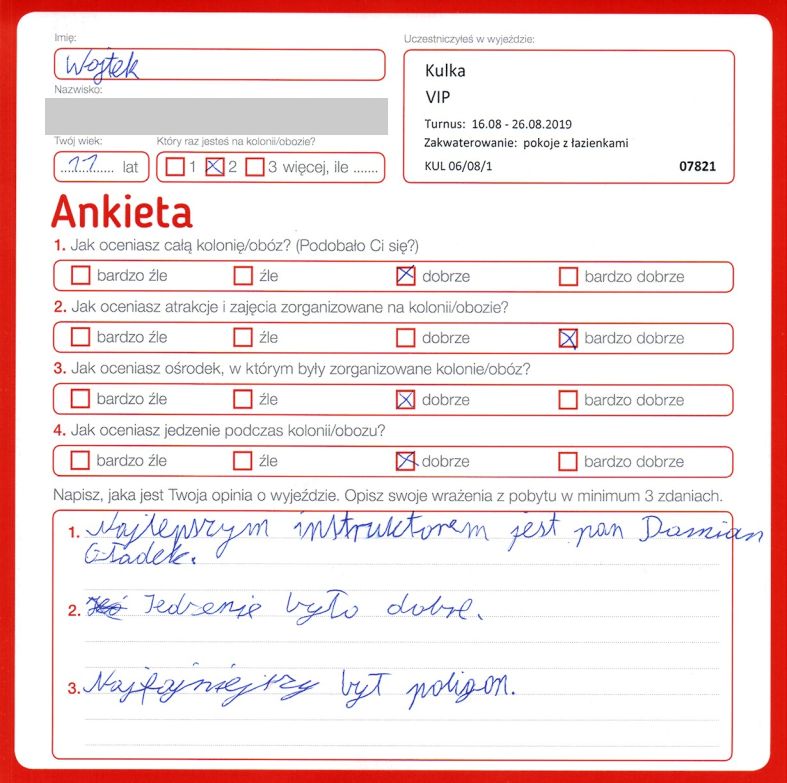 Imię:
Wojtek
Nazwisko:
Twój wiek:
11 lat
Który raz jesteś na kolonii/obozie?
1 2 3 więcej, ile .......
Uczestniczyłeś w wyjeździe:
Kulka
VIP
Turnus: 16.08 - 26.08.2019
Zakwaterowanie: pokoje z łazienkami
KUL 06/08/1 07821
Ankieta
1. Jak oceniasz całą kolonię/obóz? (Podobało Ci się?)
bardzo źle źle dobrze bardzo dobrze
2. Jak oceniasz atrakcje i zajęcia zorganizowane na kolonii/obozie?
bardzo źle źle dobrze bardzo dobrze
3. Jak oceniasz ośrodek, w którym były zorganizowane kolonie/obóz?
bardzo źle źle dobrze bardzo dobrze
4. Jak oceniasz jedzenie podczas kolonii/obozu?
bardzo źle źle dobrze bardzo dobrze
Napisz, jaka jest Twoja opinia o wyjeździe. Opisz swoje wrażenia z pobytu w minimum 3 zdaniach.
1. Najlepszym instruktorem jest pan Damian
Gładek.
2. Jedzenie było dobre.
3. Najfajniejszy był poligon.